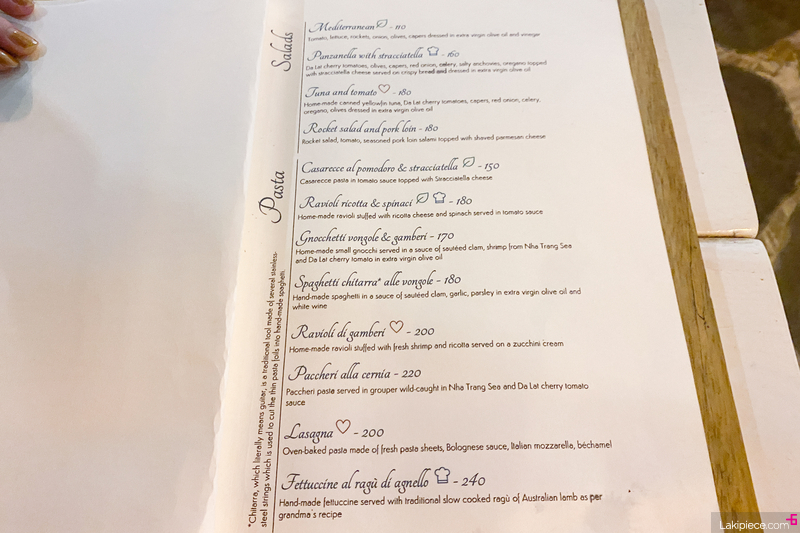 Salads
Mediterranean - 110
Tomato, lettuce, rockets, onion, olives, capers dressed in extra virgin olive oil and vinegar
Panzanella with stracciatella - 160
Da Lat cherry tomatoes, olives, capers, red onion, celery, salty anchovies, oregano topped
with stracciatella cheese served on crispy bread and dressed in extra virgin olive oil
Tuna and tomato - 180
Home-made canned yellowfin tuna, Da Lat cherry tomatoes, capers, red onion, celery,
oregano, olives dressed in extra virgin olive oil
Rocket salad and pork loin - 180
Rocket salad, tomato, seasoned pork loin salami topped with shaved parmesan cheese
Pasta
Casarecce al pomodoro & stracciatella - 150
Casarecce pasta in tomato sauce topped with Stracciatella cheese
Ravioli ricotta & spinaci - 180
Home-made ravioli stuffed with ricotta cheese and spinach served in tomato sauce
Gnocchetti vongole & gamberi - 170
Home-made small gnocchi served in a sauce of sautéed clam, shrimp from Nha Trang Sea
and Da Lat cherry tomato in extra virgin olive oil
Spaghetti chitarra* alle vongole - 180
Hand-made spaghetti in a sauce of sautéed clam, garlic, parsley in extra virgin olive oil and
white wine
Ravioli di gamberi - 200
Home-made ravioli stuffed with fresh shrimp and ricotta served on a zucchini cream
Paccheri alla cernia - 220
Paccheri pasta served in grouper wild-caught in Nha Trang Sea and Da Lat cherry tomato
sauce
Lasagna - 200
Oven-baked pasta made of fresh pasta sheets, Bolognese sauce, Italian mozzarella, béchamel
Fettuccine al ragù di agnello - 240
Hand-made fettuccine served with traditional slow cooked ragù of Australian lamb as per
grandma's recipe
*Chitarra, which literally means guitar, is a traditional tool made of several stainless-
steel strings which is used to cut the thin pasta foils into hand-made spaghetti
Lakipiece.com